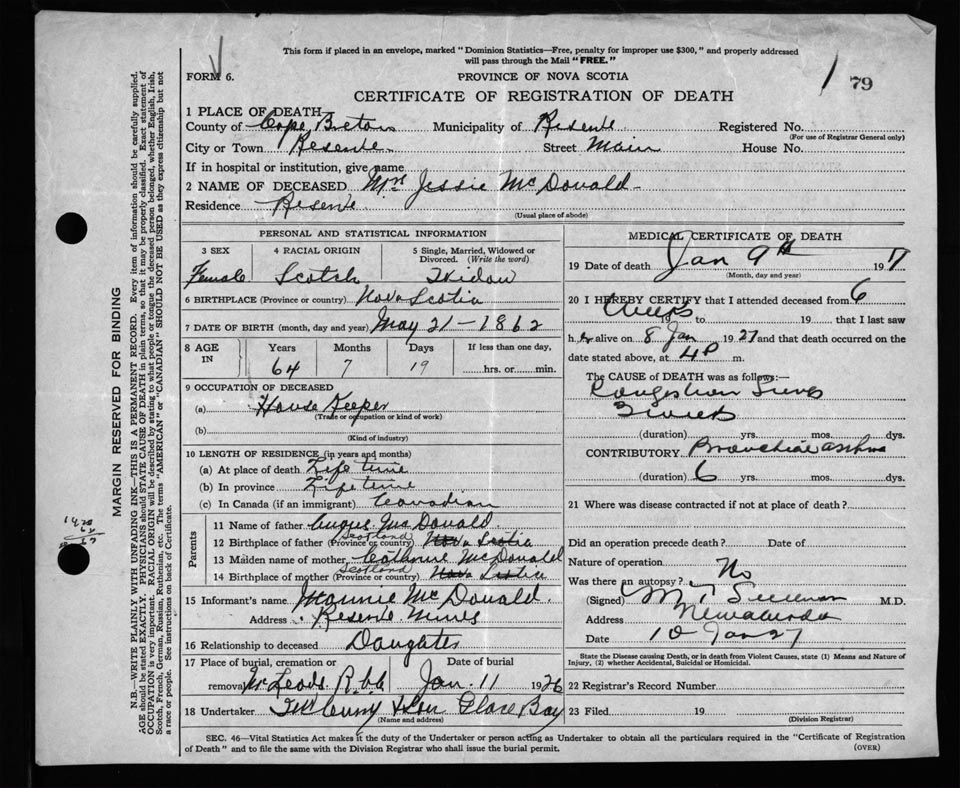 This form if placed in an envelope, marked "Dominion Statistics—Free, penalty for improper use $300," and properly addressed
will pass through the Mail "FREE."
FORM 6.
PROVINCE OF NOVA SCOTIA
79
CERTIFICATE OF REGISTRATION OF DEATH
1 PLACE OF DEATH
County of Cape Breton Municipality of Reserve Registered No.
(For use of Registrar General only)
City or Town Reserve Street Main House No.
If in hospital or institution, give name
2 NAME OF DECEASED Mrs Jessie McDonald
Residence Reserve
(Usual place of abode)
PERSONAL AND STATISTICAL INFORMATION
3 SEX 4 RACIAL ORIGIN 5 Single, Married, Widowed or Divorced. (Write the word)
Female Scotch Widow
6 BIRTHPLACE (Province or country) Nova Scotia
7 DATE OF BIRTH (month, day and year) May 21-1862
8 AGE IN Years Months Days If less than one day,
64 7 19 hrs. or min.
9 OCCUPATION OF DECEASED
(a) House Keeper
(Trade or occupation or kind of work)
(b)
(Kind of industry)
10 LENGTH OF RESIDENCE (in years and months)
(a) At place of death Life time
(b) In province Life time
(c) In Canada (if an immigrant) Canadian
Parents
11 Name of father Angus McDonald
12 Birthplace of father (Province or country) Scotland Nova Scotia
13 Maiden name of mother Catherine McDonald
14 Birthplace of mother (Province or country) Scotland Nova Scotia
15 Informant's name McDonald
Address Reserve Mines
16 Relationship to deceased Daughter
17 Place of burial, cremation or removal Date of burial
McLeods Jan. 11 1926
18 Undertaker & Son Glace Bay
(Name and address)
MEDICAL CERTIFICATE OF DEATH
19 Date of death Jan 9th 197
(Month, day and year)
20 I HEREBY CERTIFY that I attended deceased from 6
weeks 19 to 19 that I last saw
h er alive on 8 Jan 1927 and that death occurred on the
date stated above, at 4 P m.
The CAUSE OF DEATH was as follows:
Congestion Lungs
(duration) yrs. mos. dys.
CONTRIBUTORY Bronchial asthma
(duration) 6 yrs. mos. dys.
21 Where was disease contracted if not at place of death?
Did an operation precede death? Date of
Nature of operation
Was there an autopsy? No
(Signed) M.D.
Address
Date 10 Jan 27
State the Disease causing Death, or in death from Violent Causes, state (1) Means and Nature of
Injury, (2) whether Accidental, Suicidal or Homicidal.
22 Registrar's Record Number
23 Filed 19
(Division Registrar)
SEC. 46—Vital Statistics Act makes it the duty of the Undertaker or person acting as Undertaker to obtain all the particulars required in the "Certificate of Registration
of Death" and to file the same with the Division Registrar who shall issue the burial permit.
(OVER)
MARGIN RESERVED FOR BINDING
N.B.—WRITE PLAINLY WITH UNFADING INK—THIS IS A PERMANENT RECORD. Every item of information should be carefully supplied.
AGE should be stated EXACTLY. PHYSICIANS should STATE CAUSE OF DEATH in plain terms, so that it may be properly classified. Exact statement of
OCCUPATION is very important. RACIAL ORIGIN will be described by stating to what people or tongue the deceased person belonged, whether English, Irish,
Scotch, French, German, Russian, Ruthenian, etc. The terms "AMERICAN" or "CANADIAN" SHOULD NOT BE USED as they express citizenship but not
a race or people. See instructions on back of Certificate.